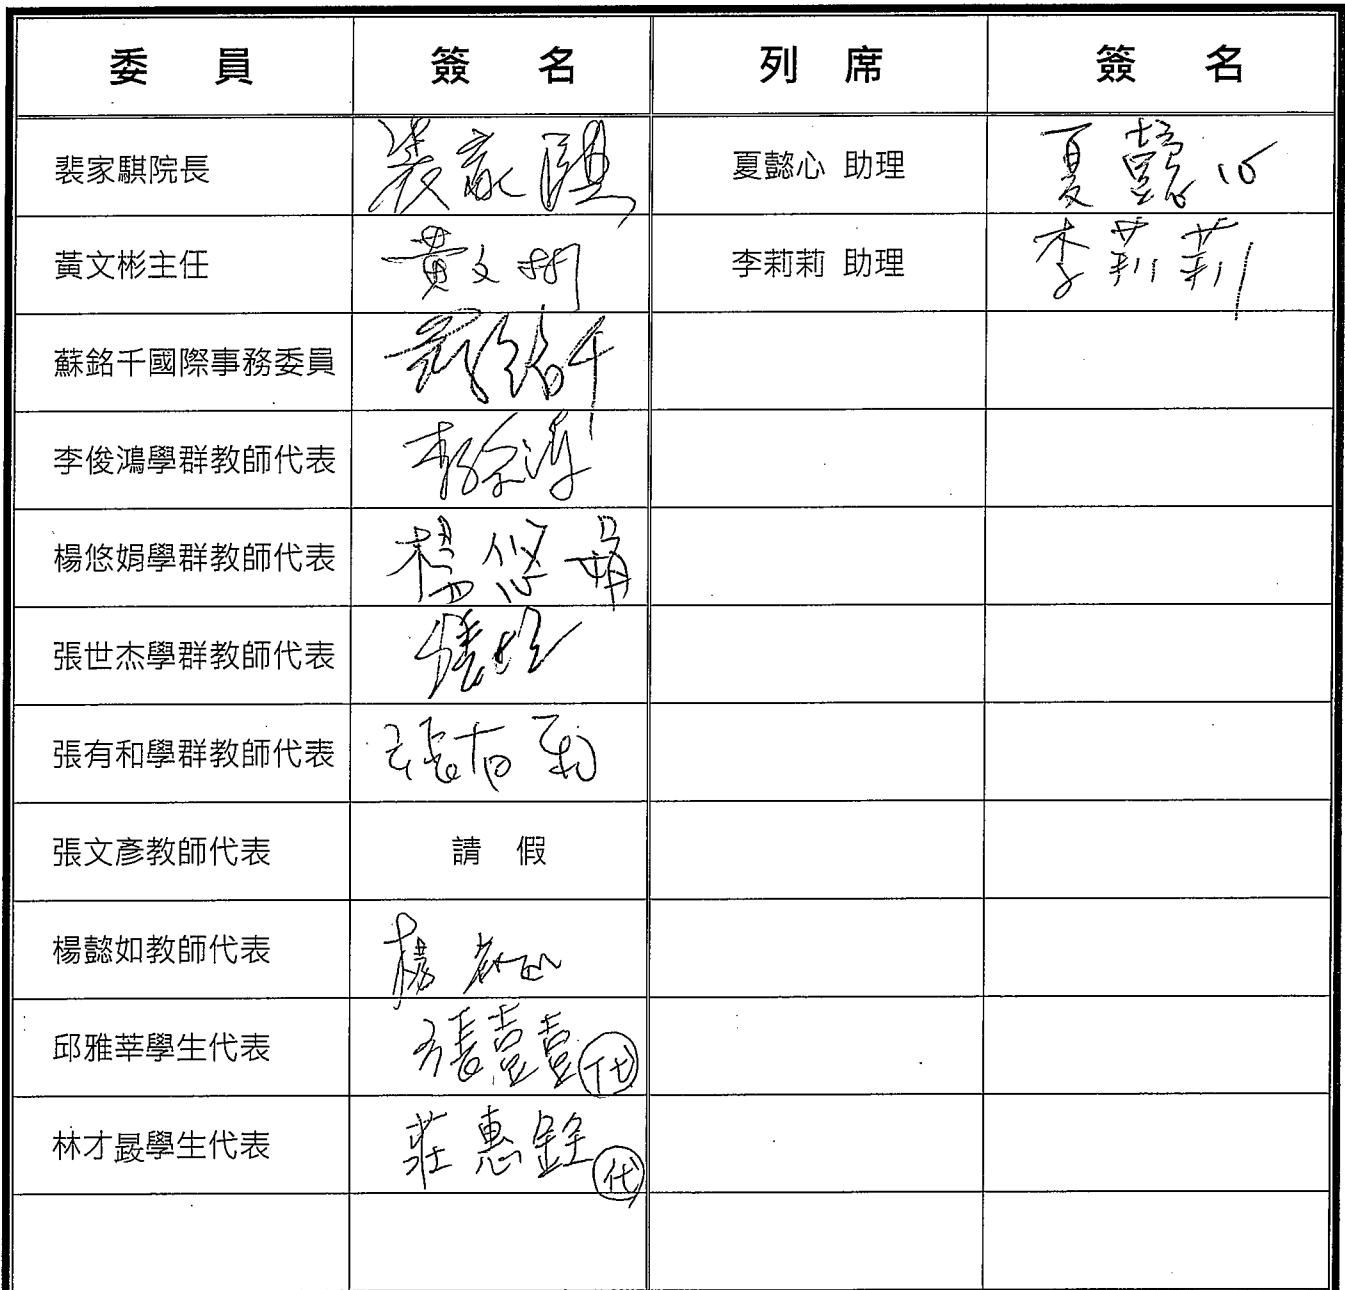 委員 簽名 列席 簽名
裴家騏院長 裴家騏 夏懿心 助理 夏懿心
黃文彬主任 黃文彬 李莉莉 助理 李莉莉
蘇銘千國際事務委員 蘇銘千
李俊鴻學群教師代表 李俊鴻
楊悠娟學群教師代表 楊悠娟
張世杰學群教師代表 張世杰
張有和學群教師代表 張有和
張文彥教師代表 請假
楊懿如教師代表 楊懿如
邱雅莘學生代表 張壹壹 代
林才晸學生代表 莊惠銓 代